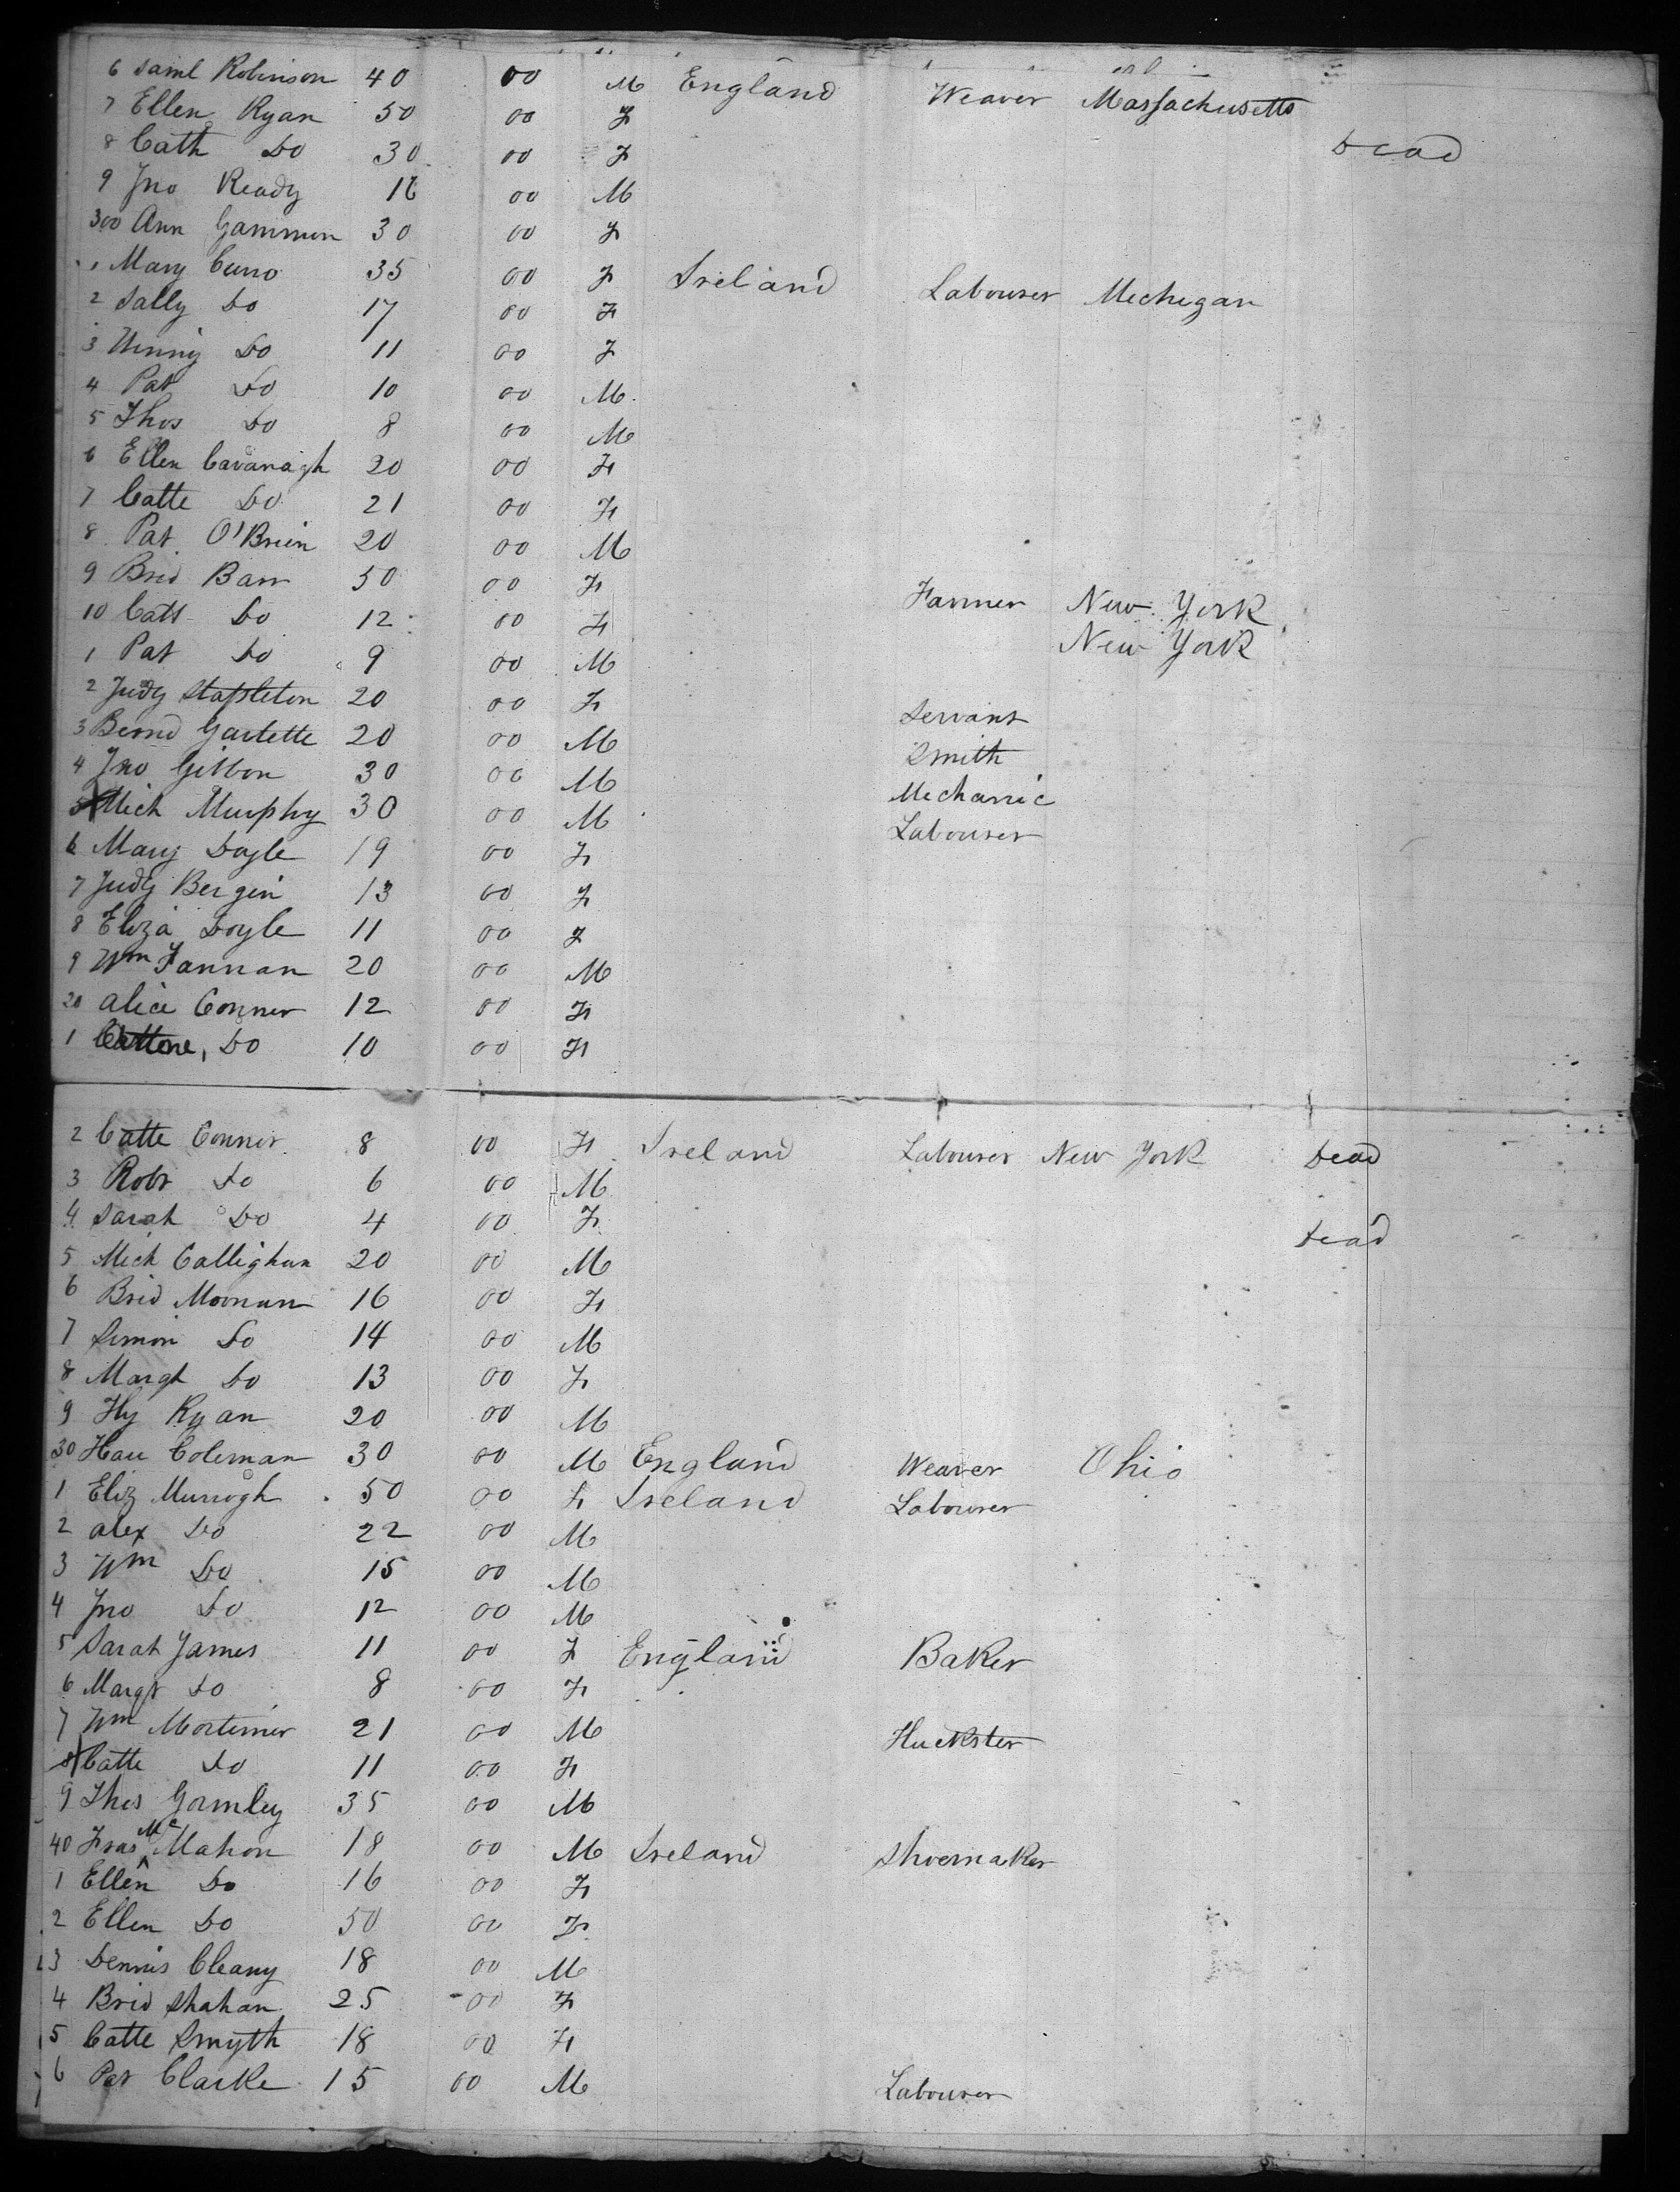 6 Saml Robinson 40 00 M England Weaver Massachusetts
7 Ellen Ryan 50 00 F
8 Cath Do 30 00 F Dead
9 Jno Ready 16 00 M
300 Ann Gammon 30 00 F
1 Mary Curro 35 00 F Ireland Labourer Mechigan
2 Sally Do 17 00 F
3 Winny Do 11 00 F
4 Pat Do 10 00 M
5 Thos Do 8 00 M
6 Ellen Cavanagh 20 00 F
7 Catte Do 21 00 F
8 Pat O'Brien 20 00 M
9 Brid Barr 50 00 F Farmer New York
10 Catt Do 12 00 F New York
1 Pat Do 9 00 M
2 Judy Stapleton 20 00 F Servant
3 Bernd Gartette 20 00 M Smith
4 Jno Gibbon 30 00 M Mechanic
5 Mich Murphy 30 00 M Labourer
6 Mary Doyle 19 00 F
7 Judy Bergin 13 00 F
8 Eliza Doyle 11 00 F
9 Wm Fannan 20 00 M
20 Alice Conner 12 00 F
1 Do 10 00 F
2 Catte Conner 8 00 F Ireland Labourer New York Dead
3 Robt Do 6 00 M
4 Sarah Do 4 00 F Dead
5 Mich Callighan 20 00 M
6 Brid Moonan 16 00 F
7 Simon Do 14 00 M
8 Margt Do 13 00 F
9 Hy Ryan 20 00 M
30 Coleman 30 00 M England Weaver Ohio
1 Eliz Murrogh 50 00 F Ireland Labourer
2 Alex Do 22 00 M
3 Wm Do 15 00 M
4 Jno Do 12 00 M
5 Sarah James 11 00 F England Baker
6 Margt Do 8 00 F
7 Wm Mortimer 21 00 M Huckster
8 Catte Do 11 00 F
9 Thos Gormley 35 00 M
40 Fras McMahon 18 00 M Ireland Shoemaker
1 Ellen Do 16 00 F
2 Ellen Do 50 00 F
3 Dennis Cleany 18 00 M
4 Brid Shahan 25 00 F
5 Catte Smyth 18 00 F
6 Pat Clarke 15 00 M Labourer